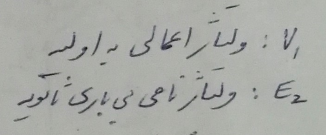 V₁ : ولتاژ اعمالی به اولیه
E₂ : ولتاژ ناحی بی باری ثانویه